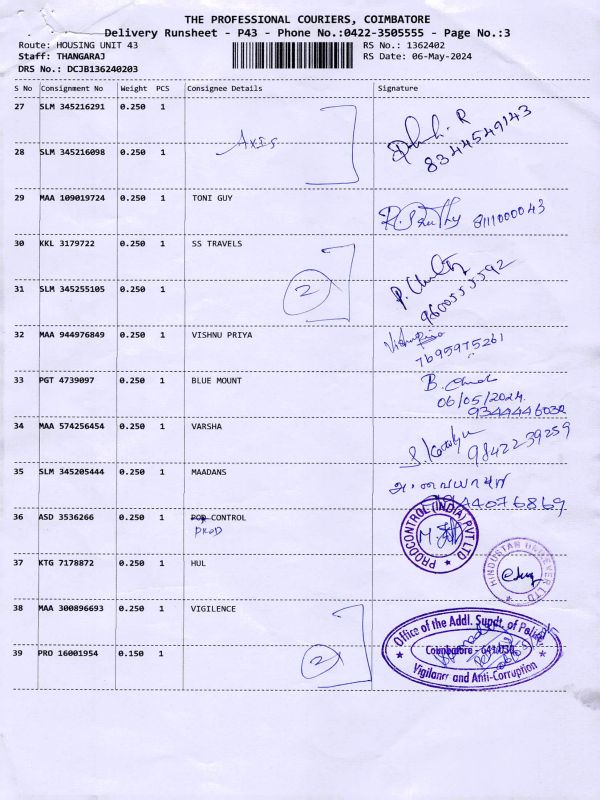 THE PROFESSIONAL COURIERS, COIMBATORE
Delivery Runsheet - P43 - Phone No.:0422-3505555 - Page No.:3
Route: HOUSING UNIT 43 RS No.: 1362402
Staff: THANGARAJ RS Date: 06-May-2024
DRS No.: DCJB136240203
S No Consignment No Weight PCS Consignee Details Signature
27 SLM 345216291 0.250 1
AXIS
8344549143
28 SLM 345216098 0.250 1
29 MAA 109019724 0.250 1 TONI GUY
8111000043
30 KKL 3179722 0.250 1 SS TRAVELS
2
31 SLM 345255105 0.250 1
9600555592
32 MAA 944976849 0.250 1 VISHNU PRIYA
7695975261
33 PGT 4739097 0.250 1 BLUE MOUNT
06/05/2024.
9344446032
34 MAA 574256454 0.250 1 VARSHA
9842239259
35 SLM 345205444 0.250 1 MAADANS
36 ASD 3536266 0.250 1 POD CONTROL
PROD
PRODCONTROL (INDIA) PVT LTD
37 KTG 7178872 0.250 1 HUL
HINDUSTAN UNILEVER LTD
38 MAA 300896693 0.250 1 VIGILENCE
Office of the Addl. Supdt. of Police
Coimbatore - 641 030.
Vigilance and Anti-Corruption
39 PRO 16001954 0.150 1
2